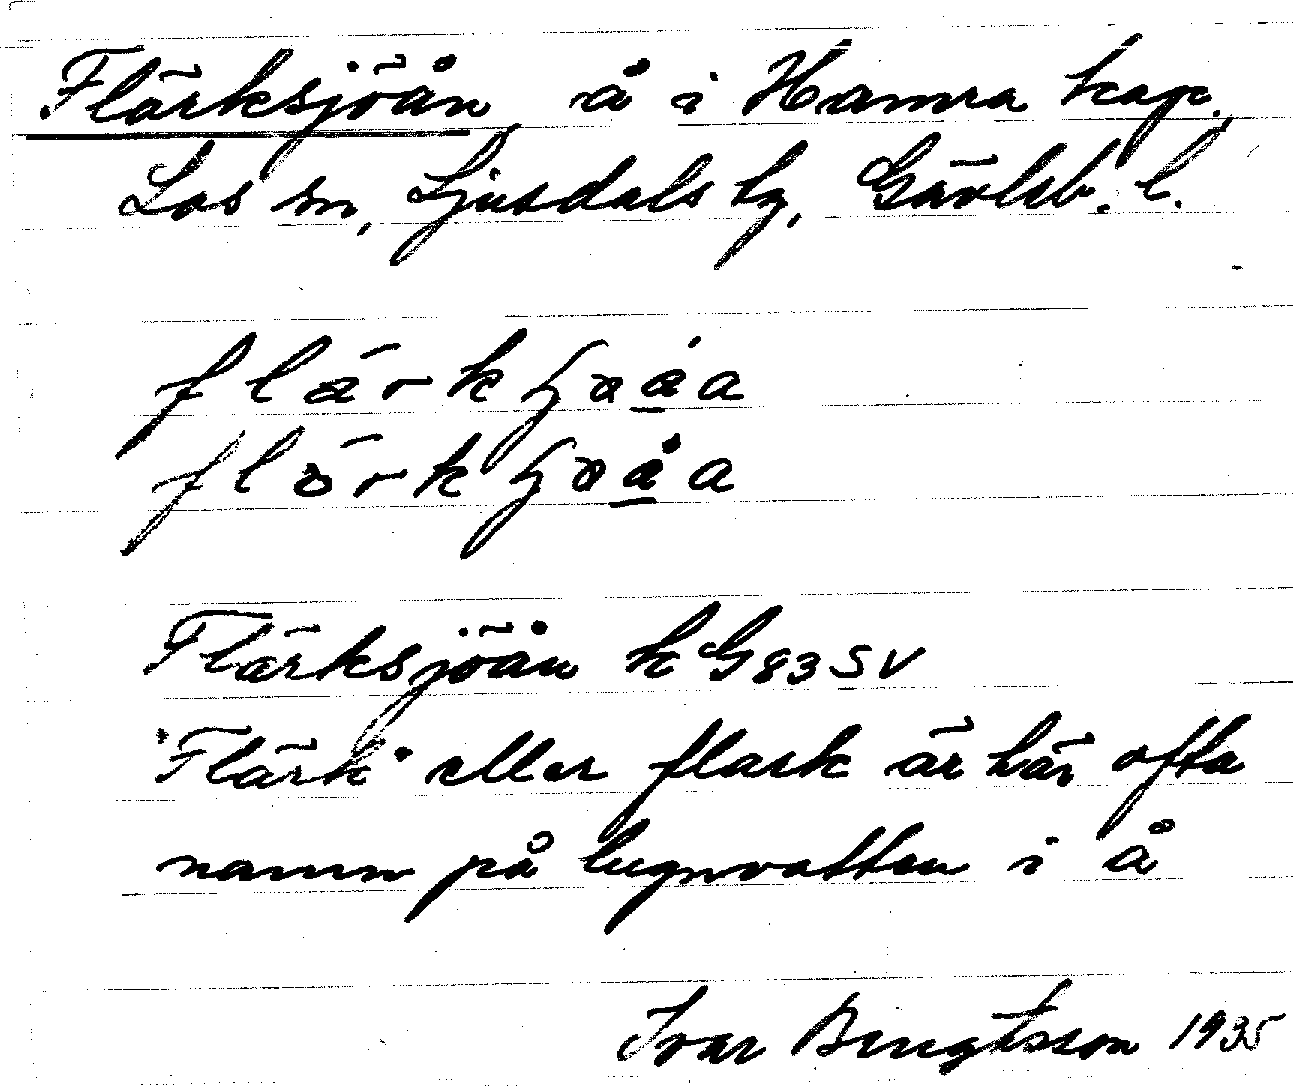 Flärksjöån å i Hamra kap.,
Los sn, Ljusdals tg, Gävleb. l.
Flärksjöån k G83SV
"Flärk" eller flark är här ofta
namn på lugnvatten i å
Ivar Bengtsson 1935